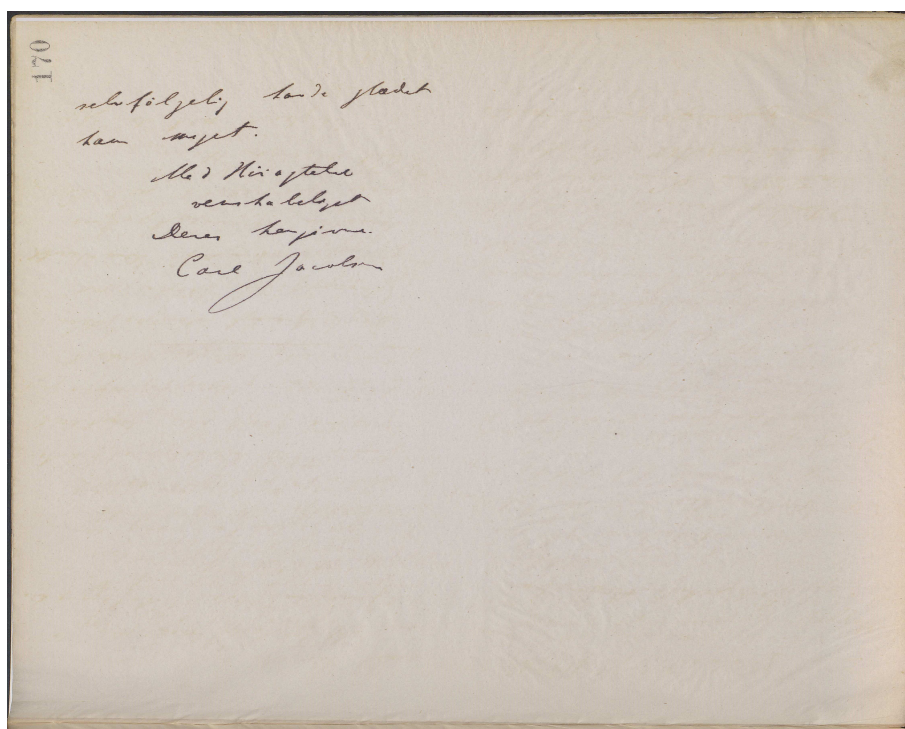 170
selvfölgelig havde glædet
ham meget.
Med Höiagtelse
venskabeligst
Deres hengivne.
Carl Jacobsen